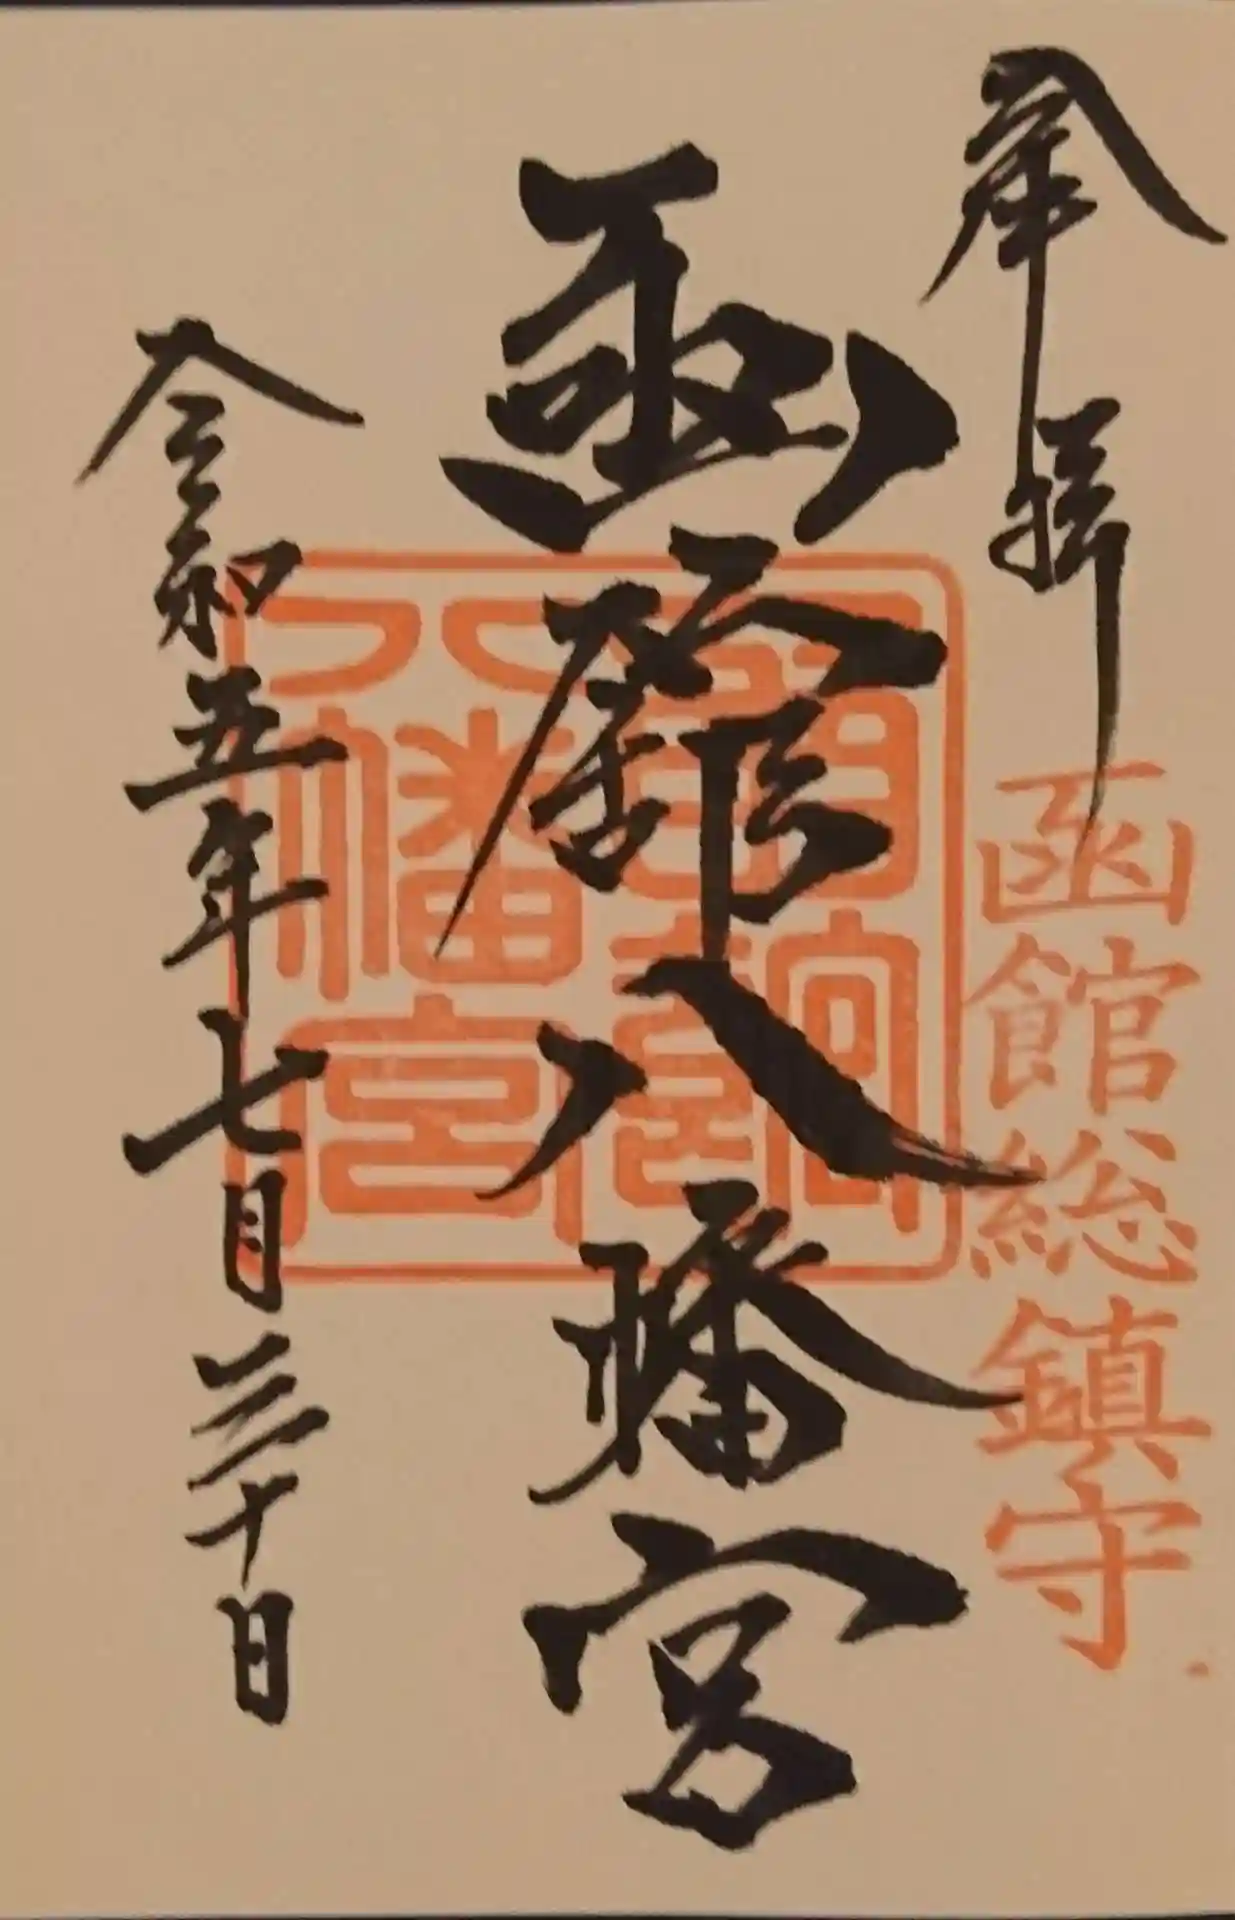 奉拝
函館総鎮守
函館八幡宮
令和五年七月三十日
八幡宮